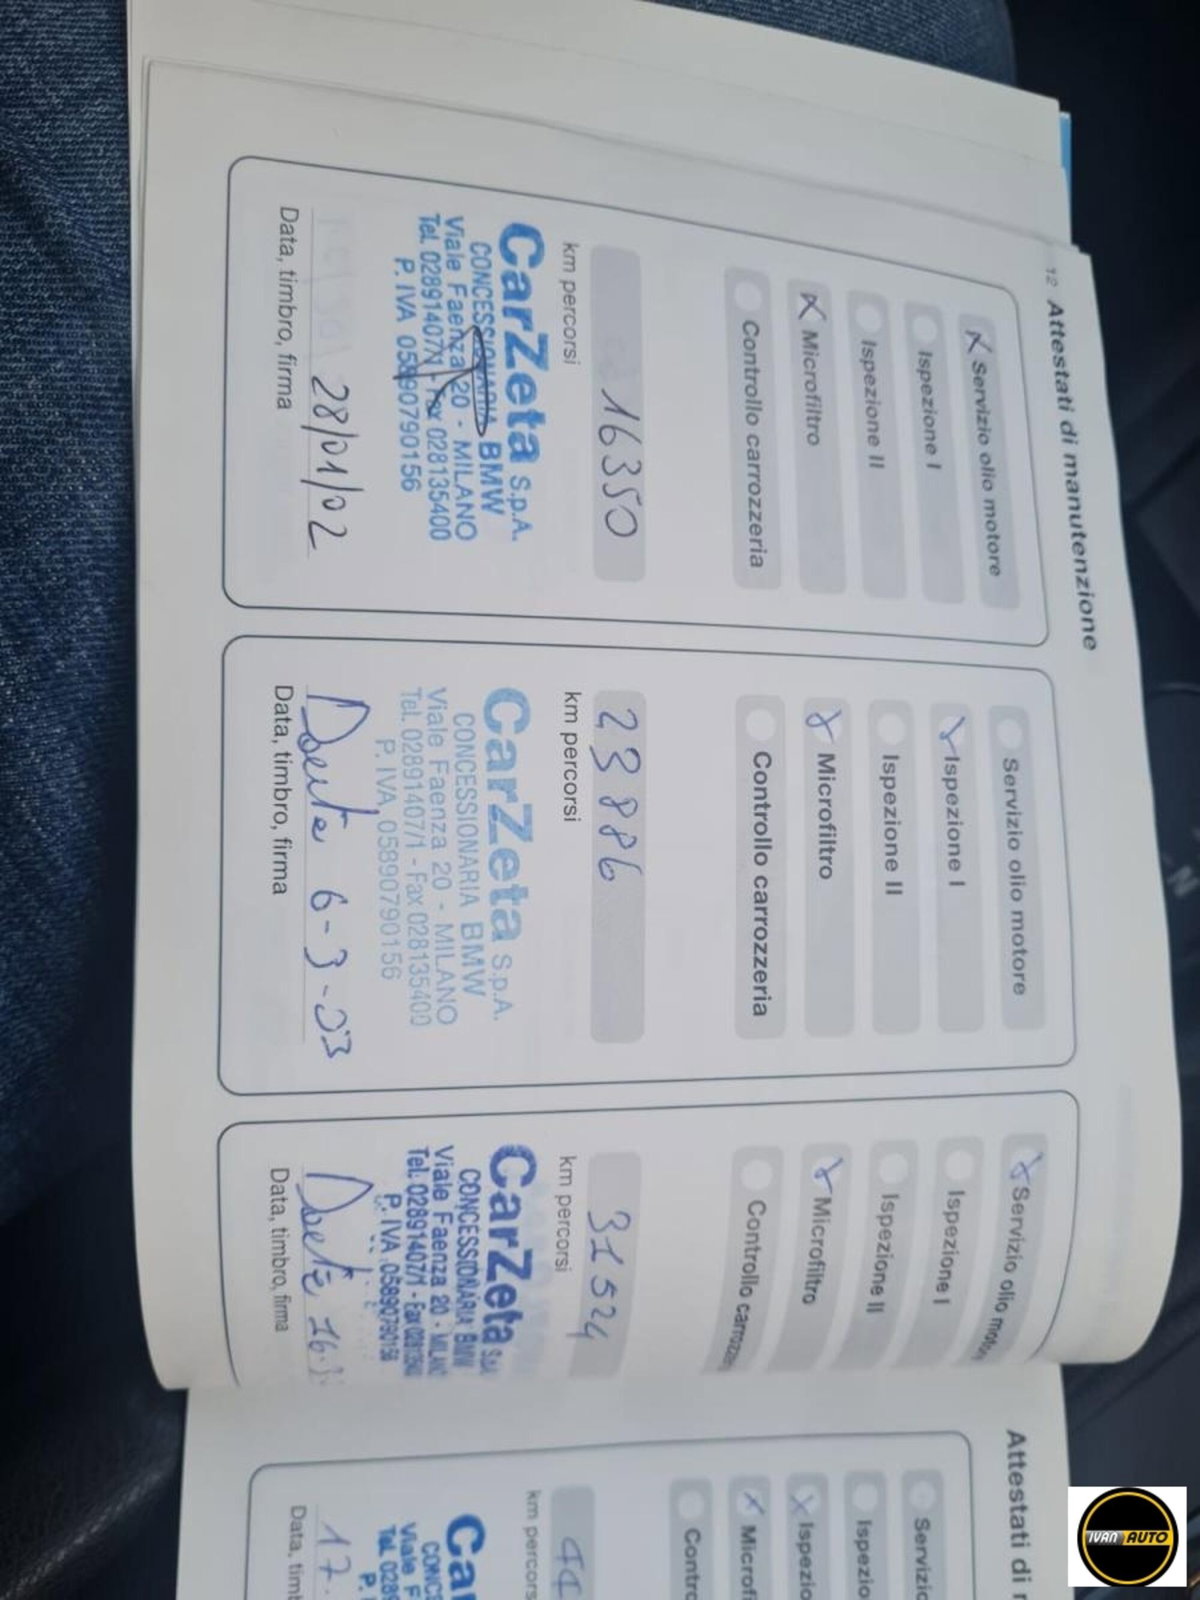 12 Attestati di manutenzione
X Servizio olio motore
Ispezione I
Ispezione II
X Microfiltro
Controllo carrozzeria
16350
km percorsi
CarZeta S.p.A.
CONCESSIONARIA BMW
Viale Faenza 20 - MILANO
Tel. 02891407/1 - Fax 028135400
P. IVA 05890790156
28/01/02
Data, timbro, firma
Servizio olio motore
X Ispezione I
Ispezione II
X Microfiltro
Controllo carrozzeria
23886
km percorsi
CarZeta S.p.A.
CONCESSIONARIA BMW
Viale Faenza 20 - MILANO
Tel. 02891407/1 - Fax 028135400
P. IVA 05890790156
6-3-03
Data, timbro, firma
X Servizio olio motore
Ispezione I
Ispezione II
X Microfiltro
Controllo carrozze
31524
km percorsi
CarZeta S.p.A.
CONCESSIONARIA BMW
Viale Faenza 20 - MILANO
Tel. 02891407/1 - Fax
P. IVA 05890790156
Data, timbro, firma
Attestati di
Servizio
Ispezio
X Ispezio
X Microfi
Contro
km percors
Ca
CONCE
Viale F
Tel. 0289
P. I
17.
Data, timb
IVAN AUTO